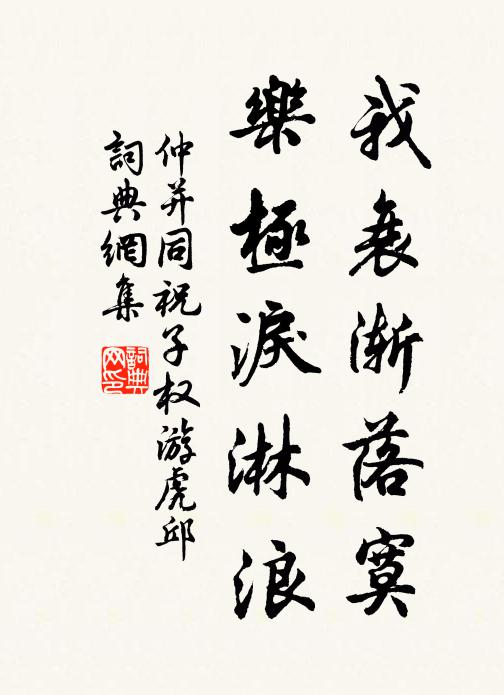 我衰渐落寞
樂極淚淋浪
仲并同祝子权游虎邱
詞典網集
詞典网印